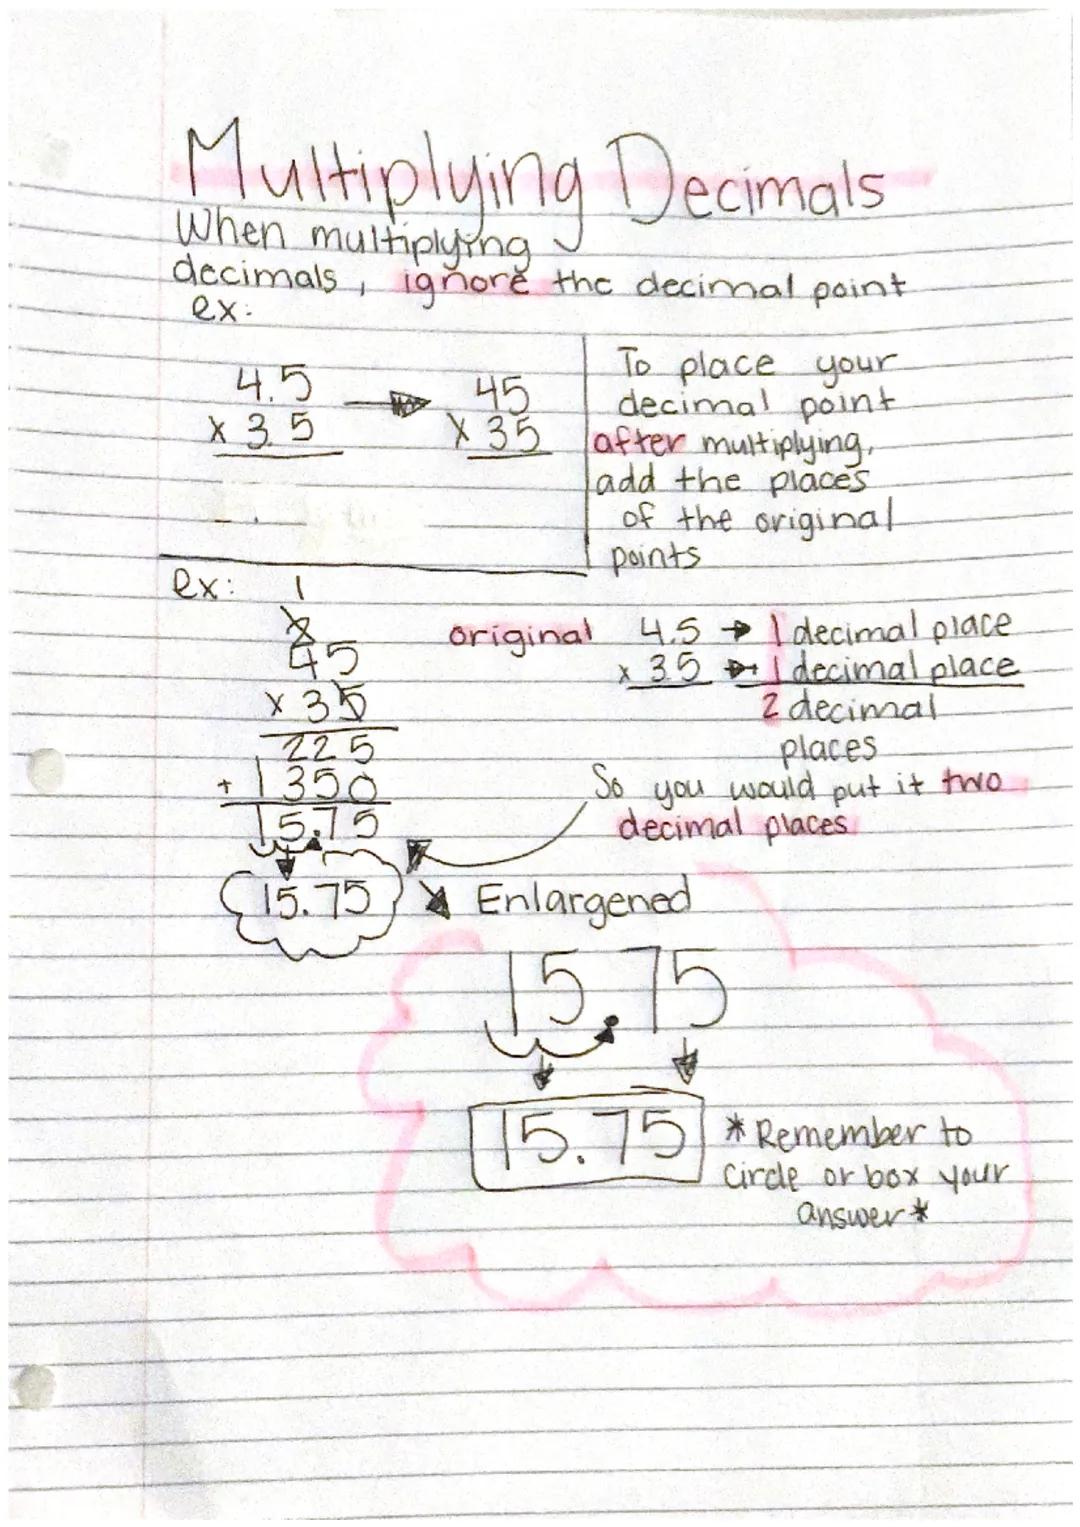 Multiplying Decimals
When multiplying
decimals, ignore the decimal point
ex:
4.5 → 45
x 3.5 x 35
To place your
decimal point
after multiplying,
add the places
of the original
points
ex: 1
2
45
x 35
225
+ 1350
15.75
15.75
original 4.5 → 1 decimal place
x 3.5 → + 1 decimal place
2 decimal
places
So you would put it two
decimal places
Enlargened
15.75
15.75
* Remember to
circle or box your
answer *